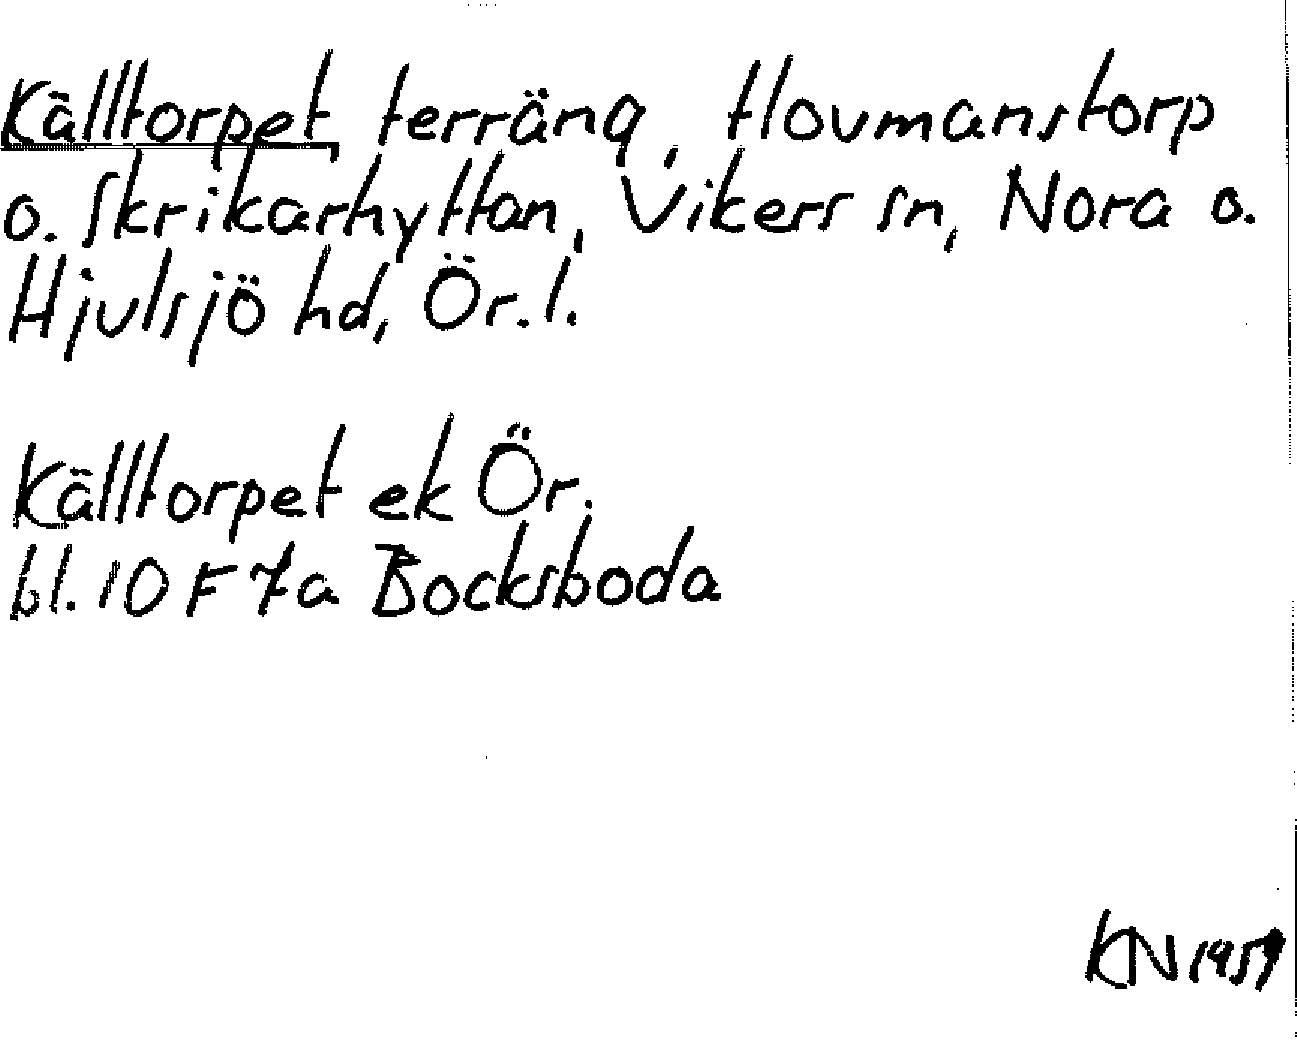 Källtorpet, terräng, Hovmanstorp
o. Skrikarhyttan, Vikers sn, Nora o.
Hjulsjö hd, Ör. l.
Källtorpet ek Ör.
bl. 10 F 7a Bocksboda
KN 1959